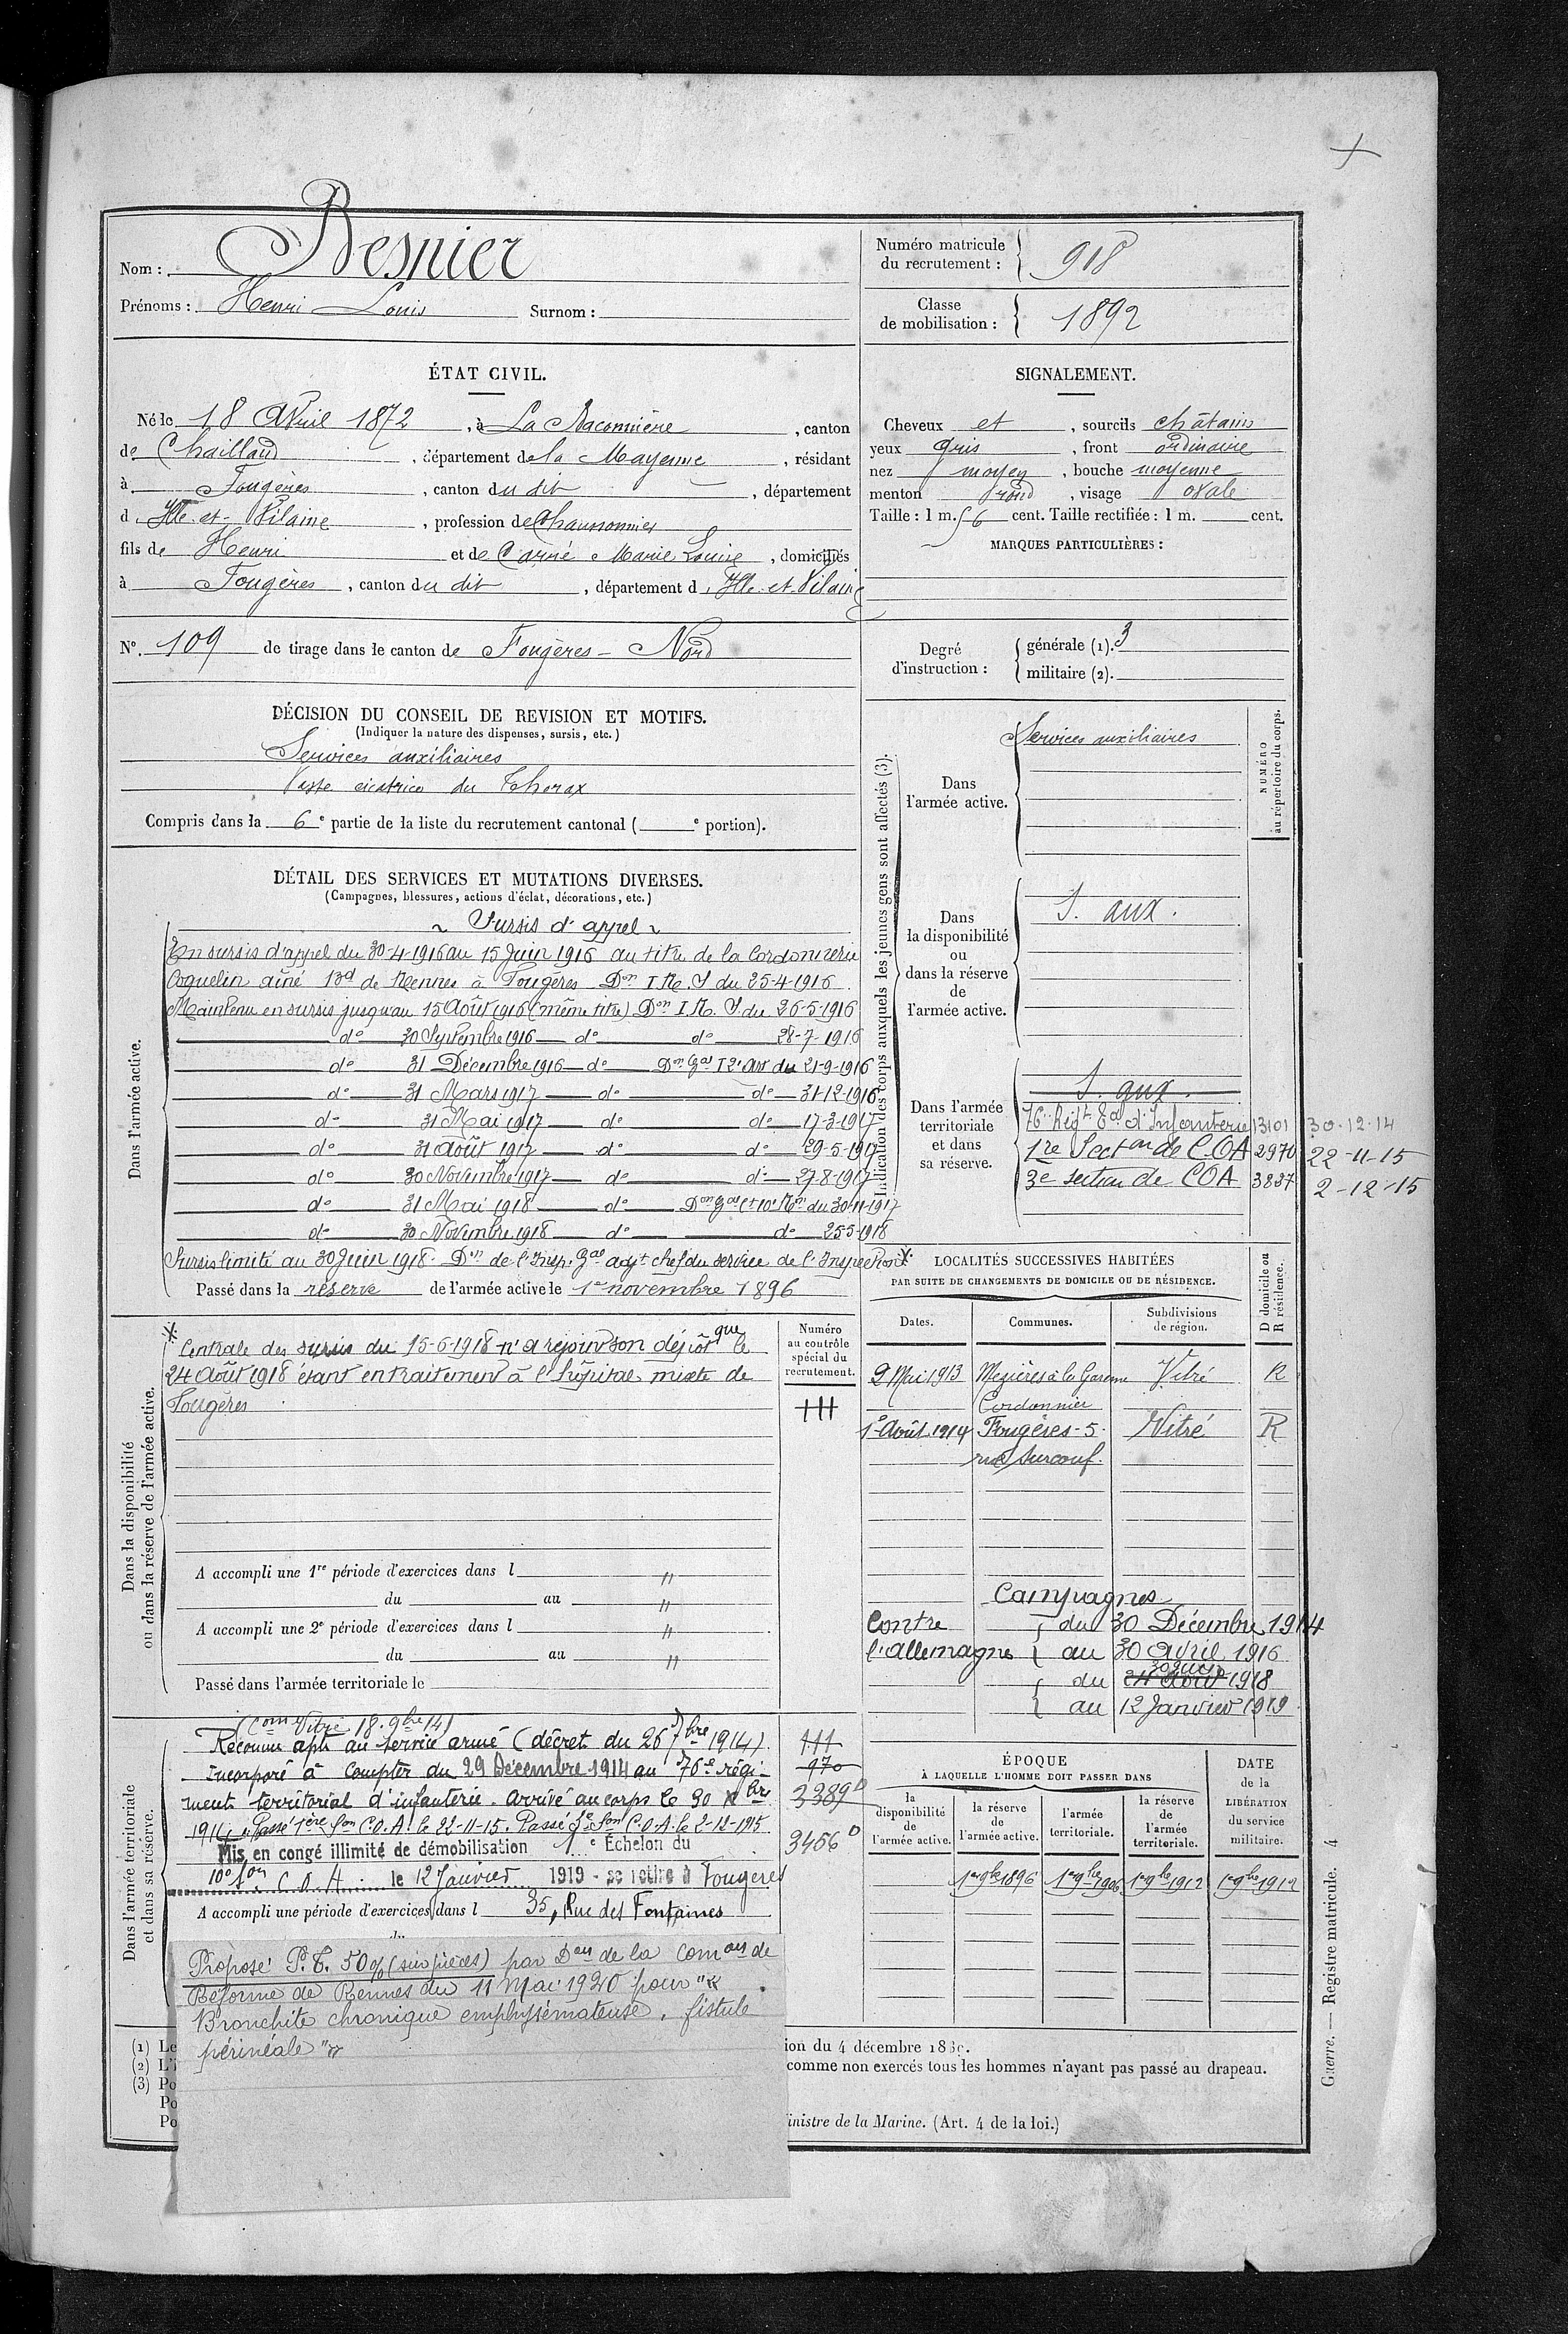 Nom : Besnier
Prénoms : Henri Louis Surnom :
Numéro matricule
du recrutement : 918
Classe
de mobilisation : 1892
ÉTAT CIVIL.
Né le 18 Avril 1872, à La Baconnière, canton
de Chailland, département de la Mayenne, résidant
à Fougères, canton du dit, département
d Ille-et-Vilaine, profession de Chaussonnier
fils de Henri et de Carré Marie Louise, domiciliés
à Fougères, canton du dit, département d Ille-et-Vilaine
SIGNALEMENT.
Cheveux et, sourcils châtains
yeux gris, front ordinaire
nez moyen, bouche moyenne
menton rond, visage ovale
Taille : 1 m. 56 cent. Taille rectifiée : 1 m. cent.
MARQUES PARTICULIÈRES :
N° 109 de tirage dans le canton de Fougères - Nord
Degré
d'instruction :
générale (1). 3
militaire (2).
DÉCISION DU CONSEIL DE REVISION ET MOTIFS.
(Indiquer la nature des dispenses, sursis, etc.)
Services auxiliaires
Vaste cicatrice du Thorax
Compris dans la 6e partie de la liste du recrutement cantonal ( e portion).
DÉTAIL DES SERVICES ET MUTATIONS DIVERSES.
(Campagnes, blessures, actions d'éclat, décorations, etc.)
Dans l'armée active.
~ Sursis d'appel ~
En sursis d'appel du 30-4-1916 au 15 Juin 1916 au titre de la Cordonnerie
Coquelin aîné Bd de Rennes à Fougères Don I.R.S du 25-4-1916
Maintenu en sursis jusqu'au 15 Août 1916 (même titre) Don I.R.S. du 26-5-1916
do 30 Septembre 1916 do do 28-7-1916
do 31 Décembre 1916 do Don Gal I 2e Art du 21-9-1916
do 31 Mars 1917 do do 31-12-1916
do 31 Mai 1917 do do 17-3-1917
do 31 Août 1917 do do 29-5-1917
do 30 Novembre 1917 do do 27-8-1917
do 31 Mai 1918 do Don Gal Ct 10e Ron du 30-11-1917
do 30 Novembre 1918 do do 25-5-1918
Sursis limité au 30 Juin 1918 Dn de l'Insp. Gal adjt chef du service de l'Inspection X
Passé dans la réserve de l'armée active le 1er novembre 1896
Indication des corps auxquels les jeunes gens sont affectés (3).
NUMÉRO
au répertoire du corps.
Dans
l'armée active.
Services auxiliaires
Dans
la disponibilité
ou
dans la réserve
de
l'armée active.
S. aux.
Dans l'armée
territoriale
et dans
sa réserve.
S. aux.
76e Régt Eal d'Infanterie 13101 30-12-14
1re Secton de C.O.A 2970 22-11-15
3e section de COA 3837 2-12-15
Dans la disponibilité
ou dans la réserve de l'armée active.
X Centrale des sursis du 15-6-1918 n'a rejoint son dépôt que le
24 Août 1918 étant en traitement à l'hôpital mixte de
Fougères
Numéro
au contrôle
spécial du
recrutement.
A accompli une 1re période d'exercices dans l "
du au "
A accompli une 2e période d'exercices dans l "
du au "
Passé dans l'armée territoriale le
LOCALITÉS SUCCESSIVES HABITÉES
PAR SUITE DE CHANGEMENTS DE DOMICILE OU DE RÉSIDENCE.
Dates. Communes. Subdivisions
de région.
D domicile ou
R résidence.
2 Mai 1913 Mezières à la Garenne Vitré R
Cordonnier
1er Août 1914 Fougères - 5 Vitré R
rue Surcouf.
Campagnes
Contre du 30 Décembre 1914
l'Allemagne au 30 Avril 1916
du 24 Août 30 Juin 1918
au 12 Janvier 1919
Dans l'armée territoriale
et dans sa réserve.
(Com Vitré 18. 9bre 14)
Reconnu apte au service armé (décret du 26 7bre 1914)
Incorporé à compter du 29 Décembre 1914 au 76e régi-
ment territorial d'infanterie. Arrivé au corps le 30 Xbre
1914. Passé 1ère Son C.O.A. le 22-11-15. Passé 3e Son C.O.A. le 2-12-1915
Mis en congé illimité de démobilisation 1e Échelon du
10e Son C.O.A. le 12 Janvier 1919 - se retire à Fougères
A accompli une période d'exercices dans l 35, Rue des Fontaines
970
3389 D
3456 D
Proposé P.T. 50% (sur pièces) par Don de la Comon de
Réforme de Rennes du 11 Mai 1920 pour "
Bronchite chronique emphysémateuse, fistule
périnéale "
ÉPOQUE
À LAQUELLE L'HOMME DOIT PASSER DANS
la
disponibilité
de
l'armée active.
la réserve
de
l'armée active.
l'armée
territoriale.
la réserve
de
l'armée
territoriale.
DATE
de la
LIBÉRATION
du service
militaire.
1er 9bre 1896 1er 9bre 1906 1er 9bre 1912 1er 9bre 1912
(1) Le
(2) L'i
(3) Po
Po
Po
ion du 4 décembre 18
comme non exercés tous les hommes n'ayant pas passé au drapeau.
inistre de la Marine. (Art. 4 de la loi.)
Guerre. — Registre matricule. 4